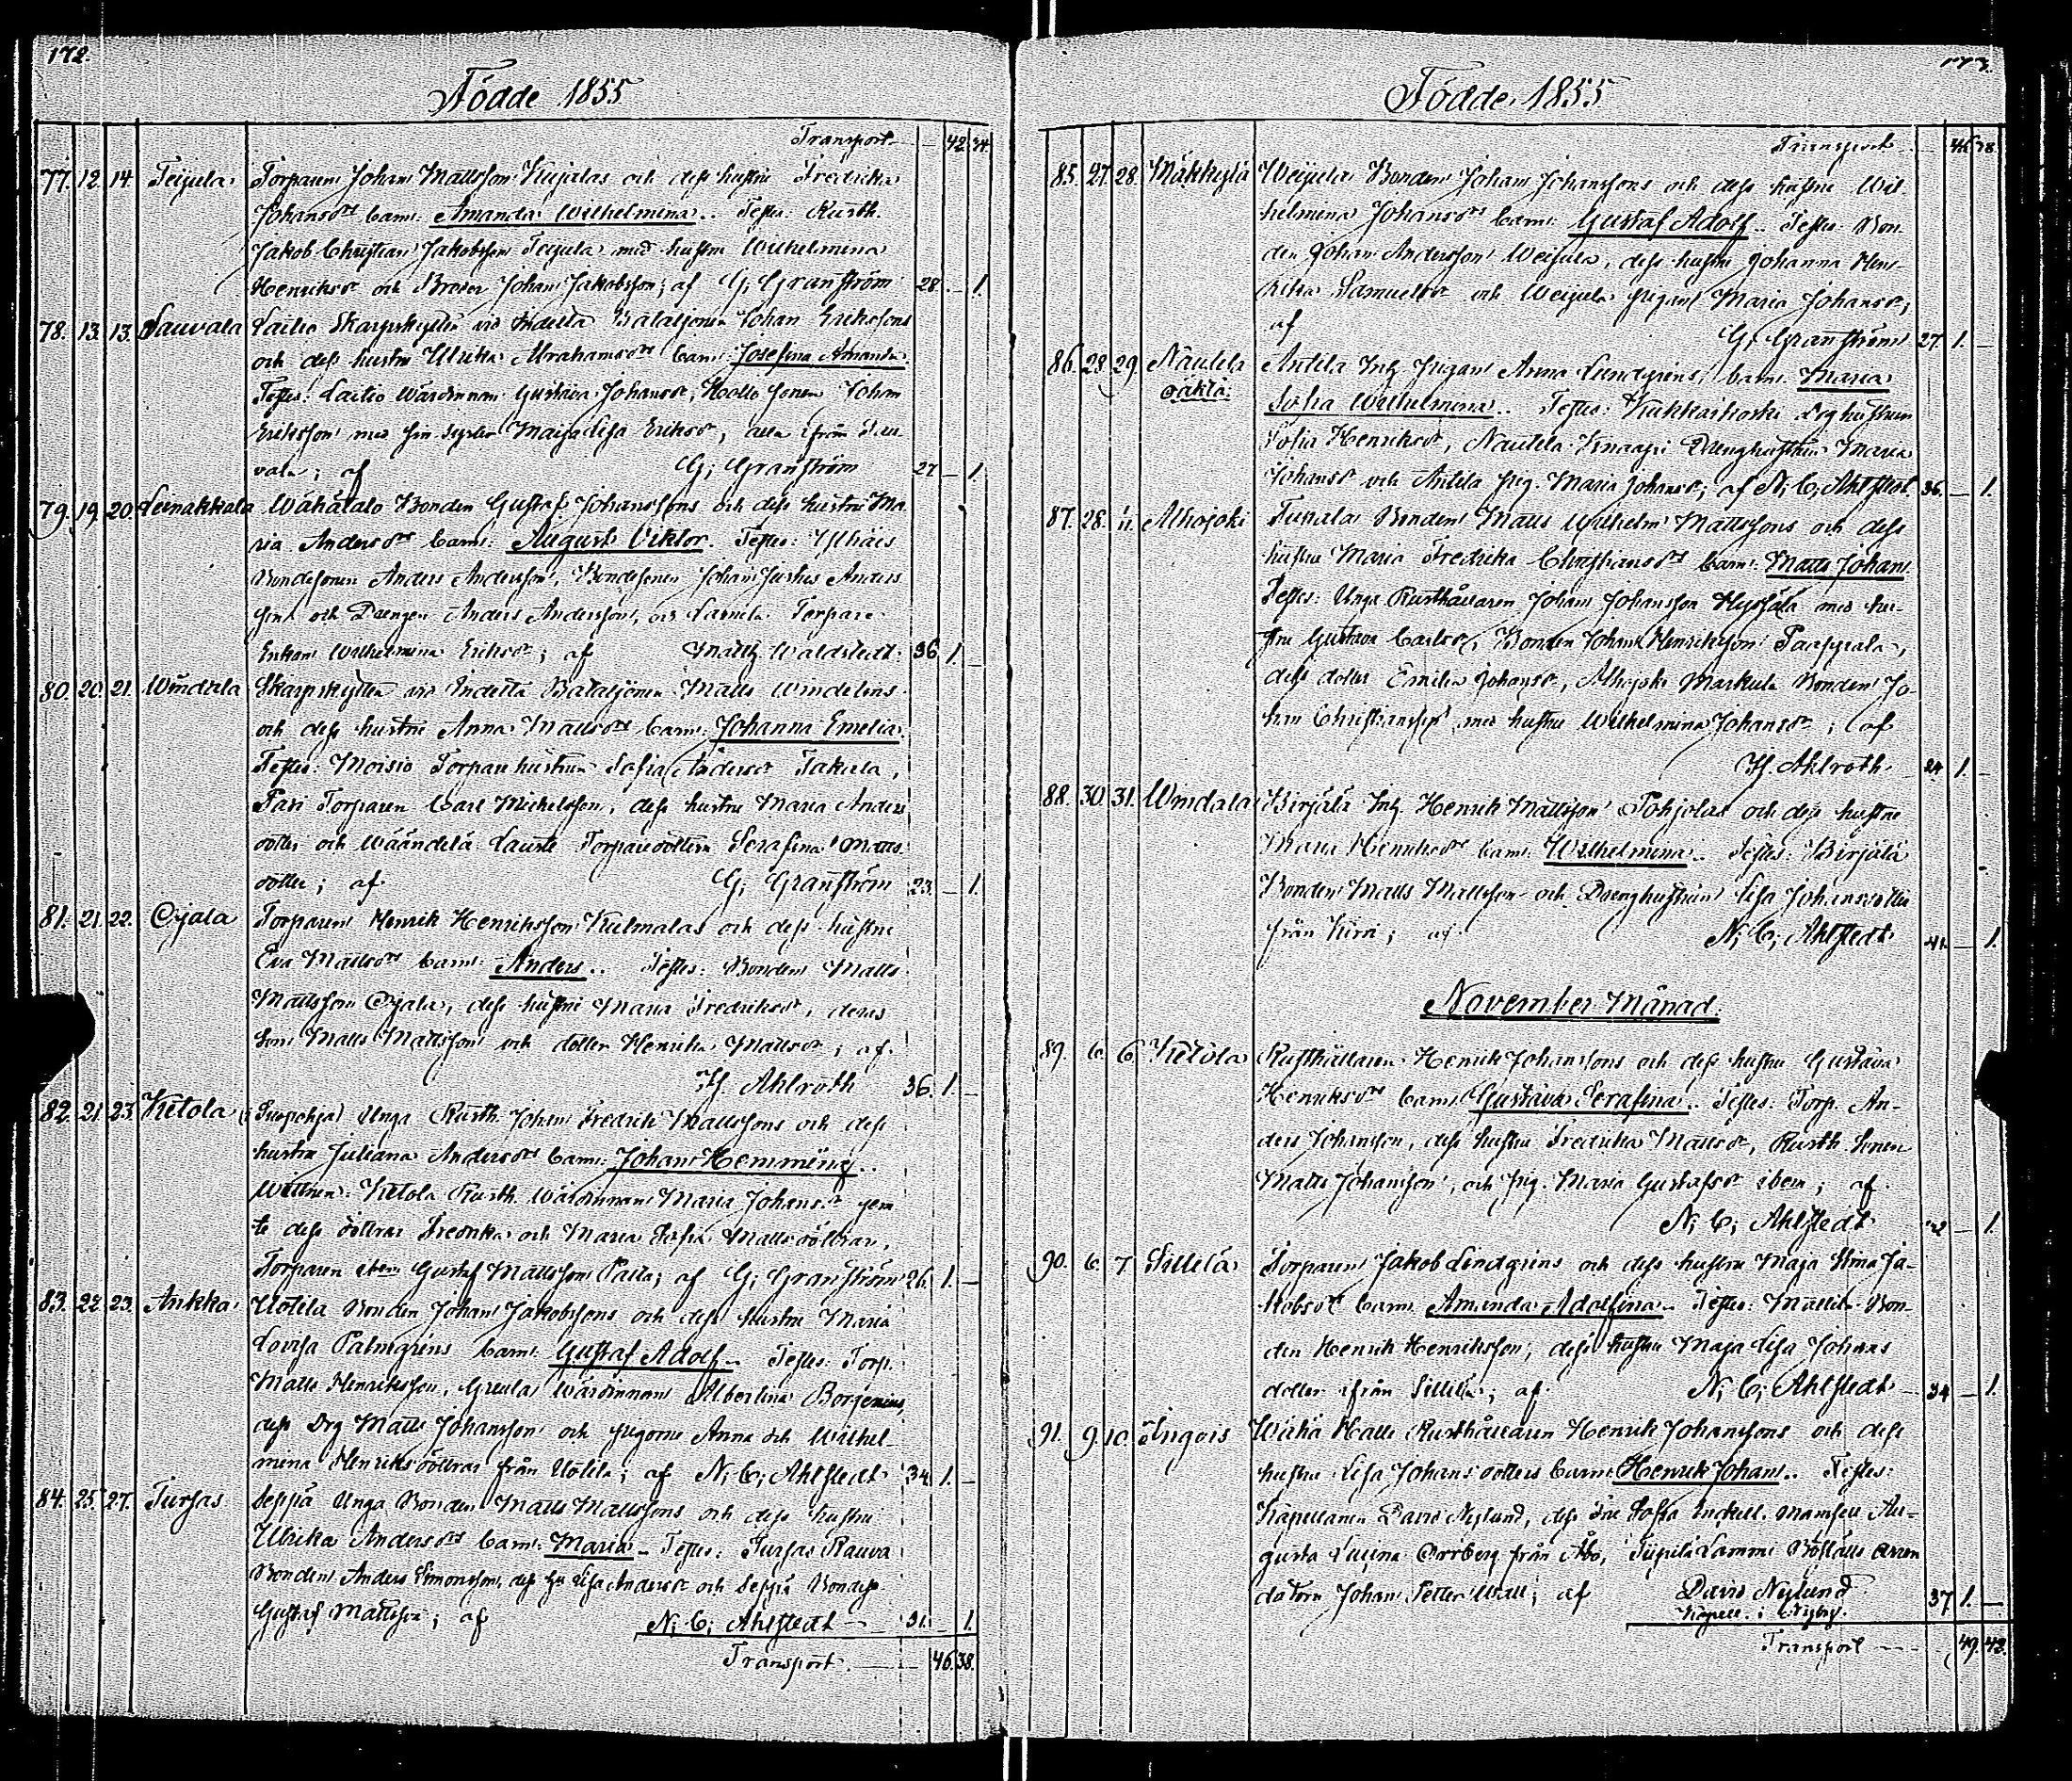 172.
Födde 1855
Transport 42 34.
77. 12. 14. Teijula Torparen Johan Mattsson Kujalas och dess hustru Fredrika
Johansdrs barn: Amanda Wilhelmina. Testes: Rusth.
Jakob Christian Jakobsson Teijula med hustru Wilhelmina
Henriksdr och Broder Johan Jakobsson; af G. Granström 28 — 1.
78. 13. 13. Sauvala Laitio Skarpskytten vid Indelta Bataljonen Johan Erikssons
och dess hustru Ulrika Abrahamsdrs barn: Josefina Amanda.
Testes: Laitio Wärdinnan Gustava Johansdr, Johan
Eriksson med sin syster Maja Lisa Eriksdr, alla ifrån Sau-
vala; af G. Granström 27 — 1.
79. 19. 20. Leinakkala Wähätalo Bonden Gustaf Johanssons och dess hustru Ma
ria Andersdrs barn: August Viktor. Testes: Ylhäis
Bondesonen Anders Andersson, Bondesonen Johan Justus Anders
son och Drengen Anders Andersson, Torpare
Enkan Wilhelmina Eriksdr; af Matth. Waldstedt. 36 1. —
80. 20. 21. Windala Skarpskytten vid Indelta Bataljonen Matts Windelins
och dess hustru Anna Mattsdrs barn: Johanna Emelia.
Testes: Moisio Torparehustrun Sofia Andersdr Takala,
Pari Torparen Carl Michelsson, dess hustru Maria Anders
dotter och Wäändelä Lauste Torparedottern Serafina Matts
dotter; af G. Granström 23. — 1.
81. 21. 22. Ojala Torparen Henrik Henriksson Kulmalas och dess hustru
Eva Mattsdrs barn: Anders. Testes: Bonden Matts
Mattsson Ojala, dess hustru Maria Fredriksdr, deras
Son Matts Mattsson och dotter Henrika Mattsdr; af
H. Ahlroth 36. 1. —
82. 21. 23. Ketola Unga Rusth. Johan Fredrik Mattssons och dess
hustru Juliana Andersdrs barn: Johan Hemming.
Wittnen: Ketola Rusth. Wärdinnan Maria Johansdr jem
te dess döttrar Fredrika och Maria Sofia Mattsdöttrar,
Torparen ibem Gustaf Mattsson Palta; af G. Granström 26. 1. —
83. 22. 23. Ankka Uotila Bonden Johan Jakobssons och dess hustru Maria
Lovisa Palmgrens barn: Gustaf Adolf. Testes: Torp.
Matts Henriksson, Wärdinnan Albertina Borgenius,
dess Drg Matts Johansson och pigorne Anna och Wilhel-
mina Henriksdöttrar från Uotila; af N. C. Ahlstedt 34. 1. —
84. 25. 27. Tursas Seppä Unga Bonden Matts Mattssons och dess hustru
Ulrika Andersdrs barn: Maria. Testes: Tursas Rauva
Bonden Anders Simonsson, dess hu Lisa Andersdr och Seppä Bondes.
Gustaf Mattsson; af N. C. Ahlstedt 31. — 1.
Transport. 46. 38.
173.
Födde 1855
Transport 46 38.
85. 27. 28. Mäkkylä Weijula Bonden Johan Johanssons och dess hustru Wil
helmina Johansdrs barn: Gustaf Adolf. Testes: Bon
den Johan Andersson Weijula, dess hustru Johanna Hen-
rika Samuelsdr och Weijula pigan Maria Johansdr;
af G. Granström 27. 1. —
86. 28. 29. Nautela Antila Inh. Pigan Anna Lundgrens barn: Maria
oäkta. Sofia Wilhelmina. Testes: Kukkarkoski Drghustrun
Sofia Henriksdr, Nautela Knaapi Drenghustrun Maria
Johansdr och Antila pig. Maria Johansdr; af N. C. Ahlstedt 36. — 1.
87. 28. Alhojoki Tunala Bonden Matts Wilhelm Mattssons och dess
hustru Maria Fredrika Christiansdrs barn: Matts Johan.
Testes: Unga Rusthållaren Johan Johansson Hyssälä med hu-
stru Gustava Carlsdr, Bonden Johan Henriksson Paappala,
dess dotter Emilia Johansdr, Alhojoki Markula Bonden Jo-
han Christiansson med hustru Wilhelmina Johansdr; af
H. Ahlroth 24 1. —
88. 30. 31. Windala Birjälä Inh. Henrik Mattsson Pohjolas och dess hustru
Maria Henriksdrs barn: Wilhelmina. Testes: Birjälä
Bonden Matts Mattsson och Drenghustrun Lisa Johansdotter
från; af N. C. Ahlstedt 41. — 1.
November Månad.
89. 6. 6. Ketola Rusthållaren Henrik Johanssons och dess hustru Gustava
Henriksdrs barn: Gustava Serafina. Testes: Torp. An-
ders Johansson, dess hustru Fredrika Mattsdr, Rusth. Sonen
Matts Johansson, och pig. Maria Gustafsdr ibem; af
N. C. Ahlstedt — 1.
90. 6. 7. Sillilä Torparen Jakob Lindgrens och dess hustru Maja Stina Ja-
kobsdrs barn: Amanda Adolfina. Testes: Bon-
den Henrik Henriksson, dess hustru Maja Lisa Johans
dotter ifrån Sillilä; af N. C. Ahlstedt 34 — 1.
91. 9. 10. Ingois Wähä Halli Rusthållaren Henrik Johanssons och dess
hustru Lisa Johansdotters barn: Henrik Johan. Testes:
Kapellanen David Nylund, dess Fru Sofia Inckell. Mamsell Au-
gusta Orrberg från Åbo, Boställs Arren
datorn Johan Petter Wall; af David Nylund 37 1. —
Kapell. i Nyby.
Transport 49. 42.